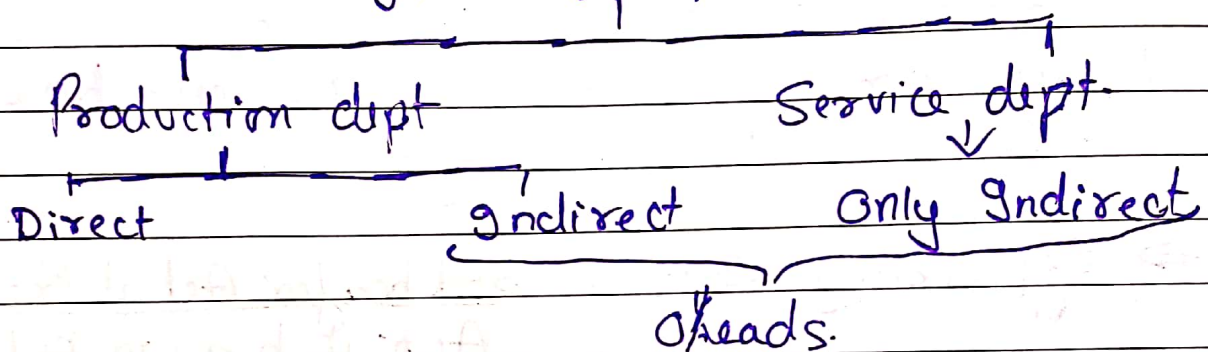 Production dept Service dept.
Direct Indirect Only Indirect
O/heads.